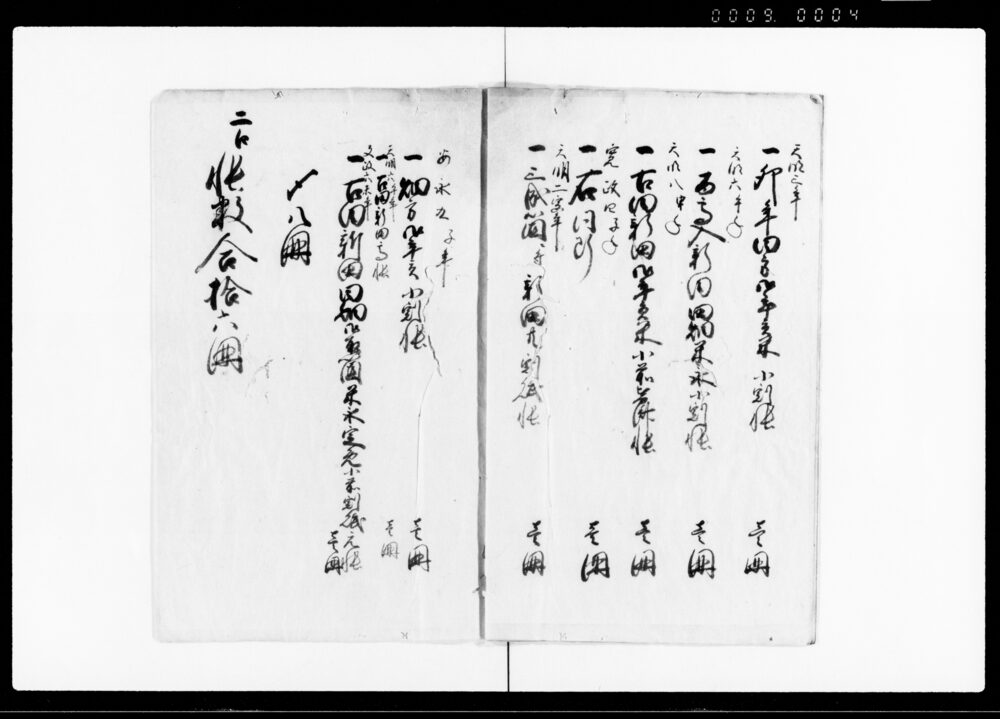 0009. 0004
天明三年
一卯年田方御年貢米小割帳 壱冊
天明六年
一 高入新田畑米永小割帳 壱冊
天明八申年
一古田新田御年貢米小前帳 壱冊
寛政四子年
一右同断 壱冊
天明二寅年
一 新田 割賦帳 壱冊
安永九子年
一畑方御年貢小割帳 壱冊
天明六午年
一古田新田高帳 壱冊
文政六未年
一古田新田田畑御取箇米永定免小前割賦元帳 壱冊
〆八冊
二口
帳数合拾六冊